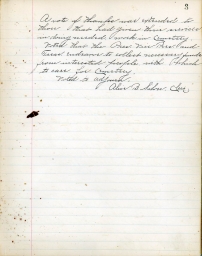 3
A vote of thanks was extended to
those that had given their services
in doing needed work in Cemetery
Voted that the Pres. Vice Pres. and
Treas. endeavor to collect necessary funds
from interested people with which
to care for Cemetery
Voted to adjourn.
Alice B.